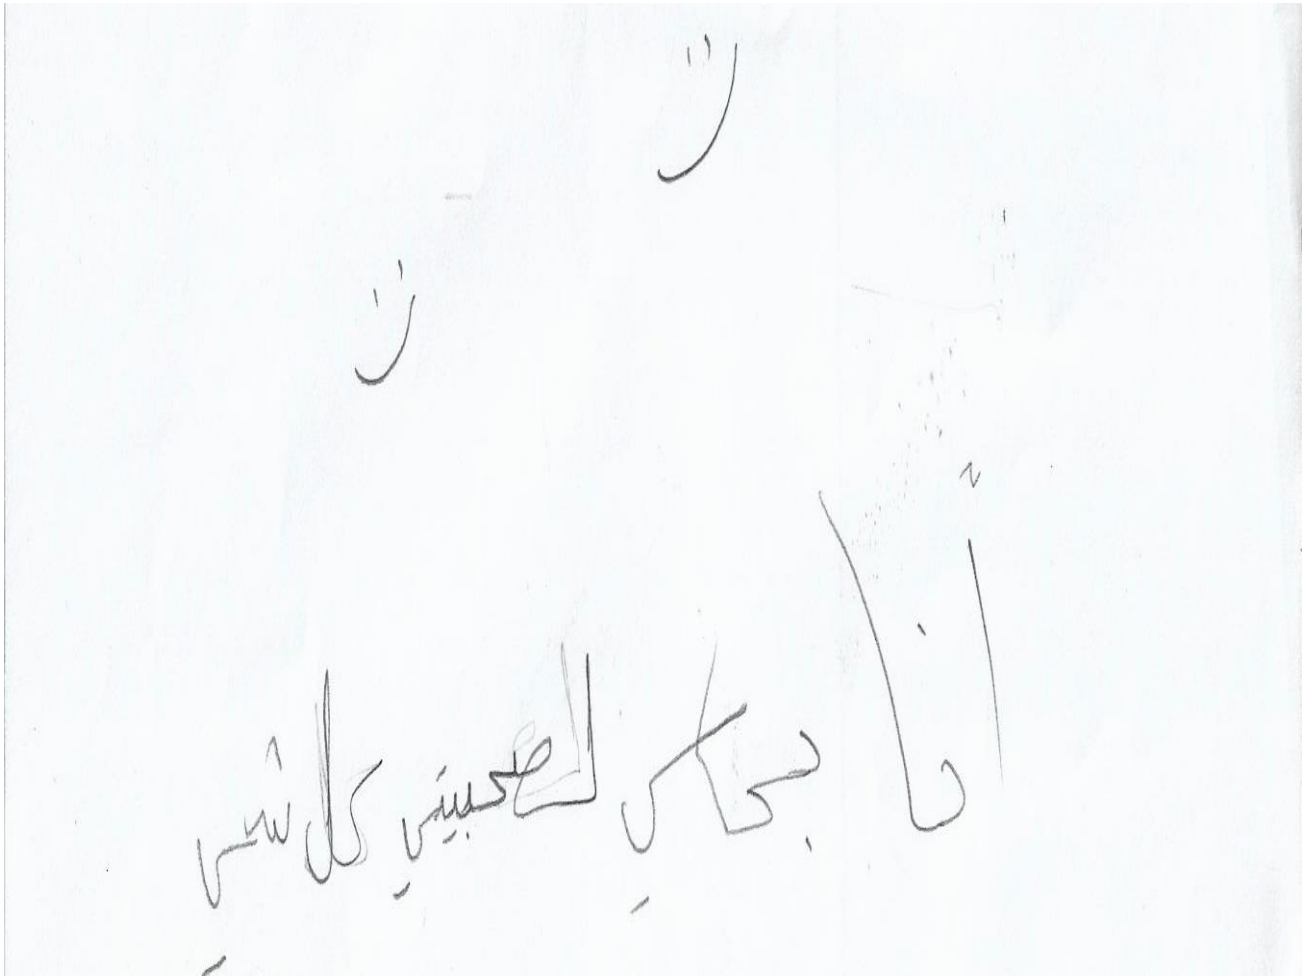 ن
ن
أنا بحاكي لصحبيتي كل شي